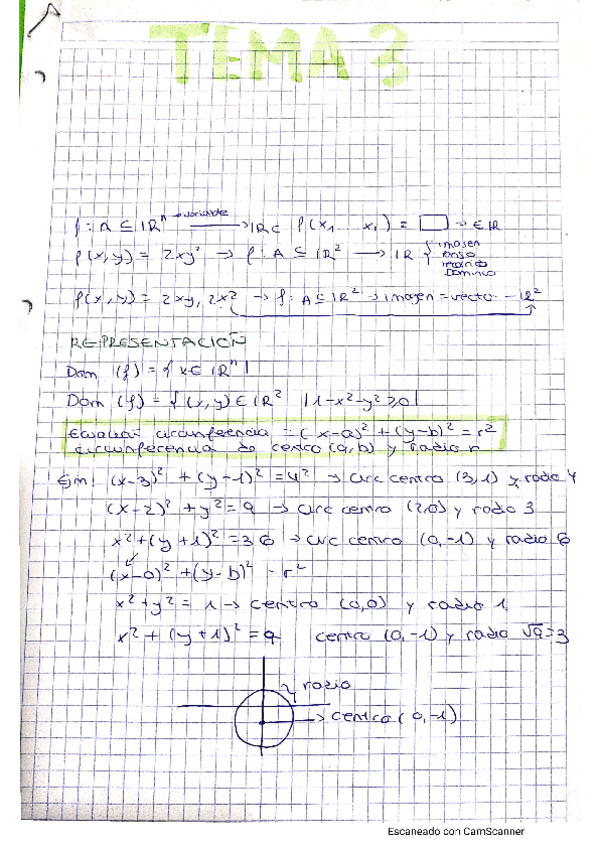 TEMA 3
f: A ⊆ ℝⁿ → variable → ℝ ⊂ f(x₁... xₙ) = □ → ∈ ℝ
f(x,y) = 2xy² → f: A ⊆ ℝ² → ℝ { imagen
rango
recorrido
Dominio
f(x,y) = 2xy, 2x² → f: A ⊆ ℝ² → imagen = vector - ℝ²
REPRESENTACIÓN
Dom (f) = { x ∈ ℝⁿ |
Dom (f) = { (x,y) ∈ ℝ² | 1-x²-y² ≥ 0 |
Ecuación circunferencia: (x-a)² + (y-b)² = r²
circunferencia de centro (a,b) y radio r
Ejm: (x-3)² + (y-1)² = 4² → circ centro (3,1) y radio 4
(x-2)² + y² = 9 → circ centro (2,0) y radio 3
x² + (y+1)² = 36 → circ centro (0,-1) y radio 6
(x-0)² + (y-b)² = r²
x² + y² = 1 → centro (0,0) y radio 1
x² + (y+1)² = 9 centro (0,-1) y radio √9=3
radio
→ centro (0,-1)
Escaneado con CamScanner